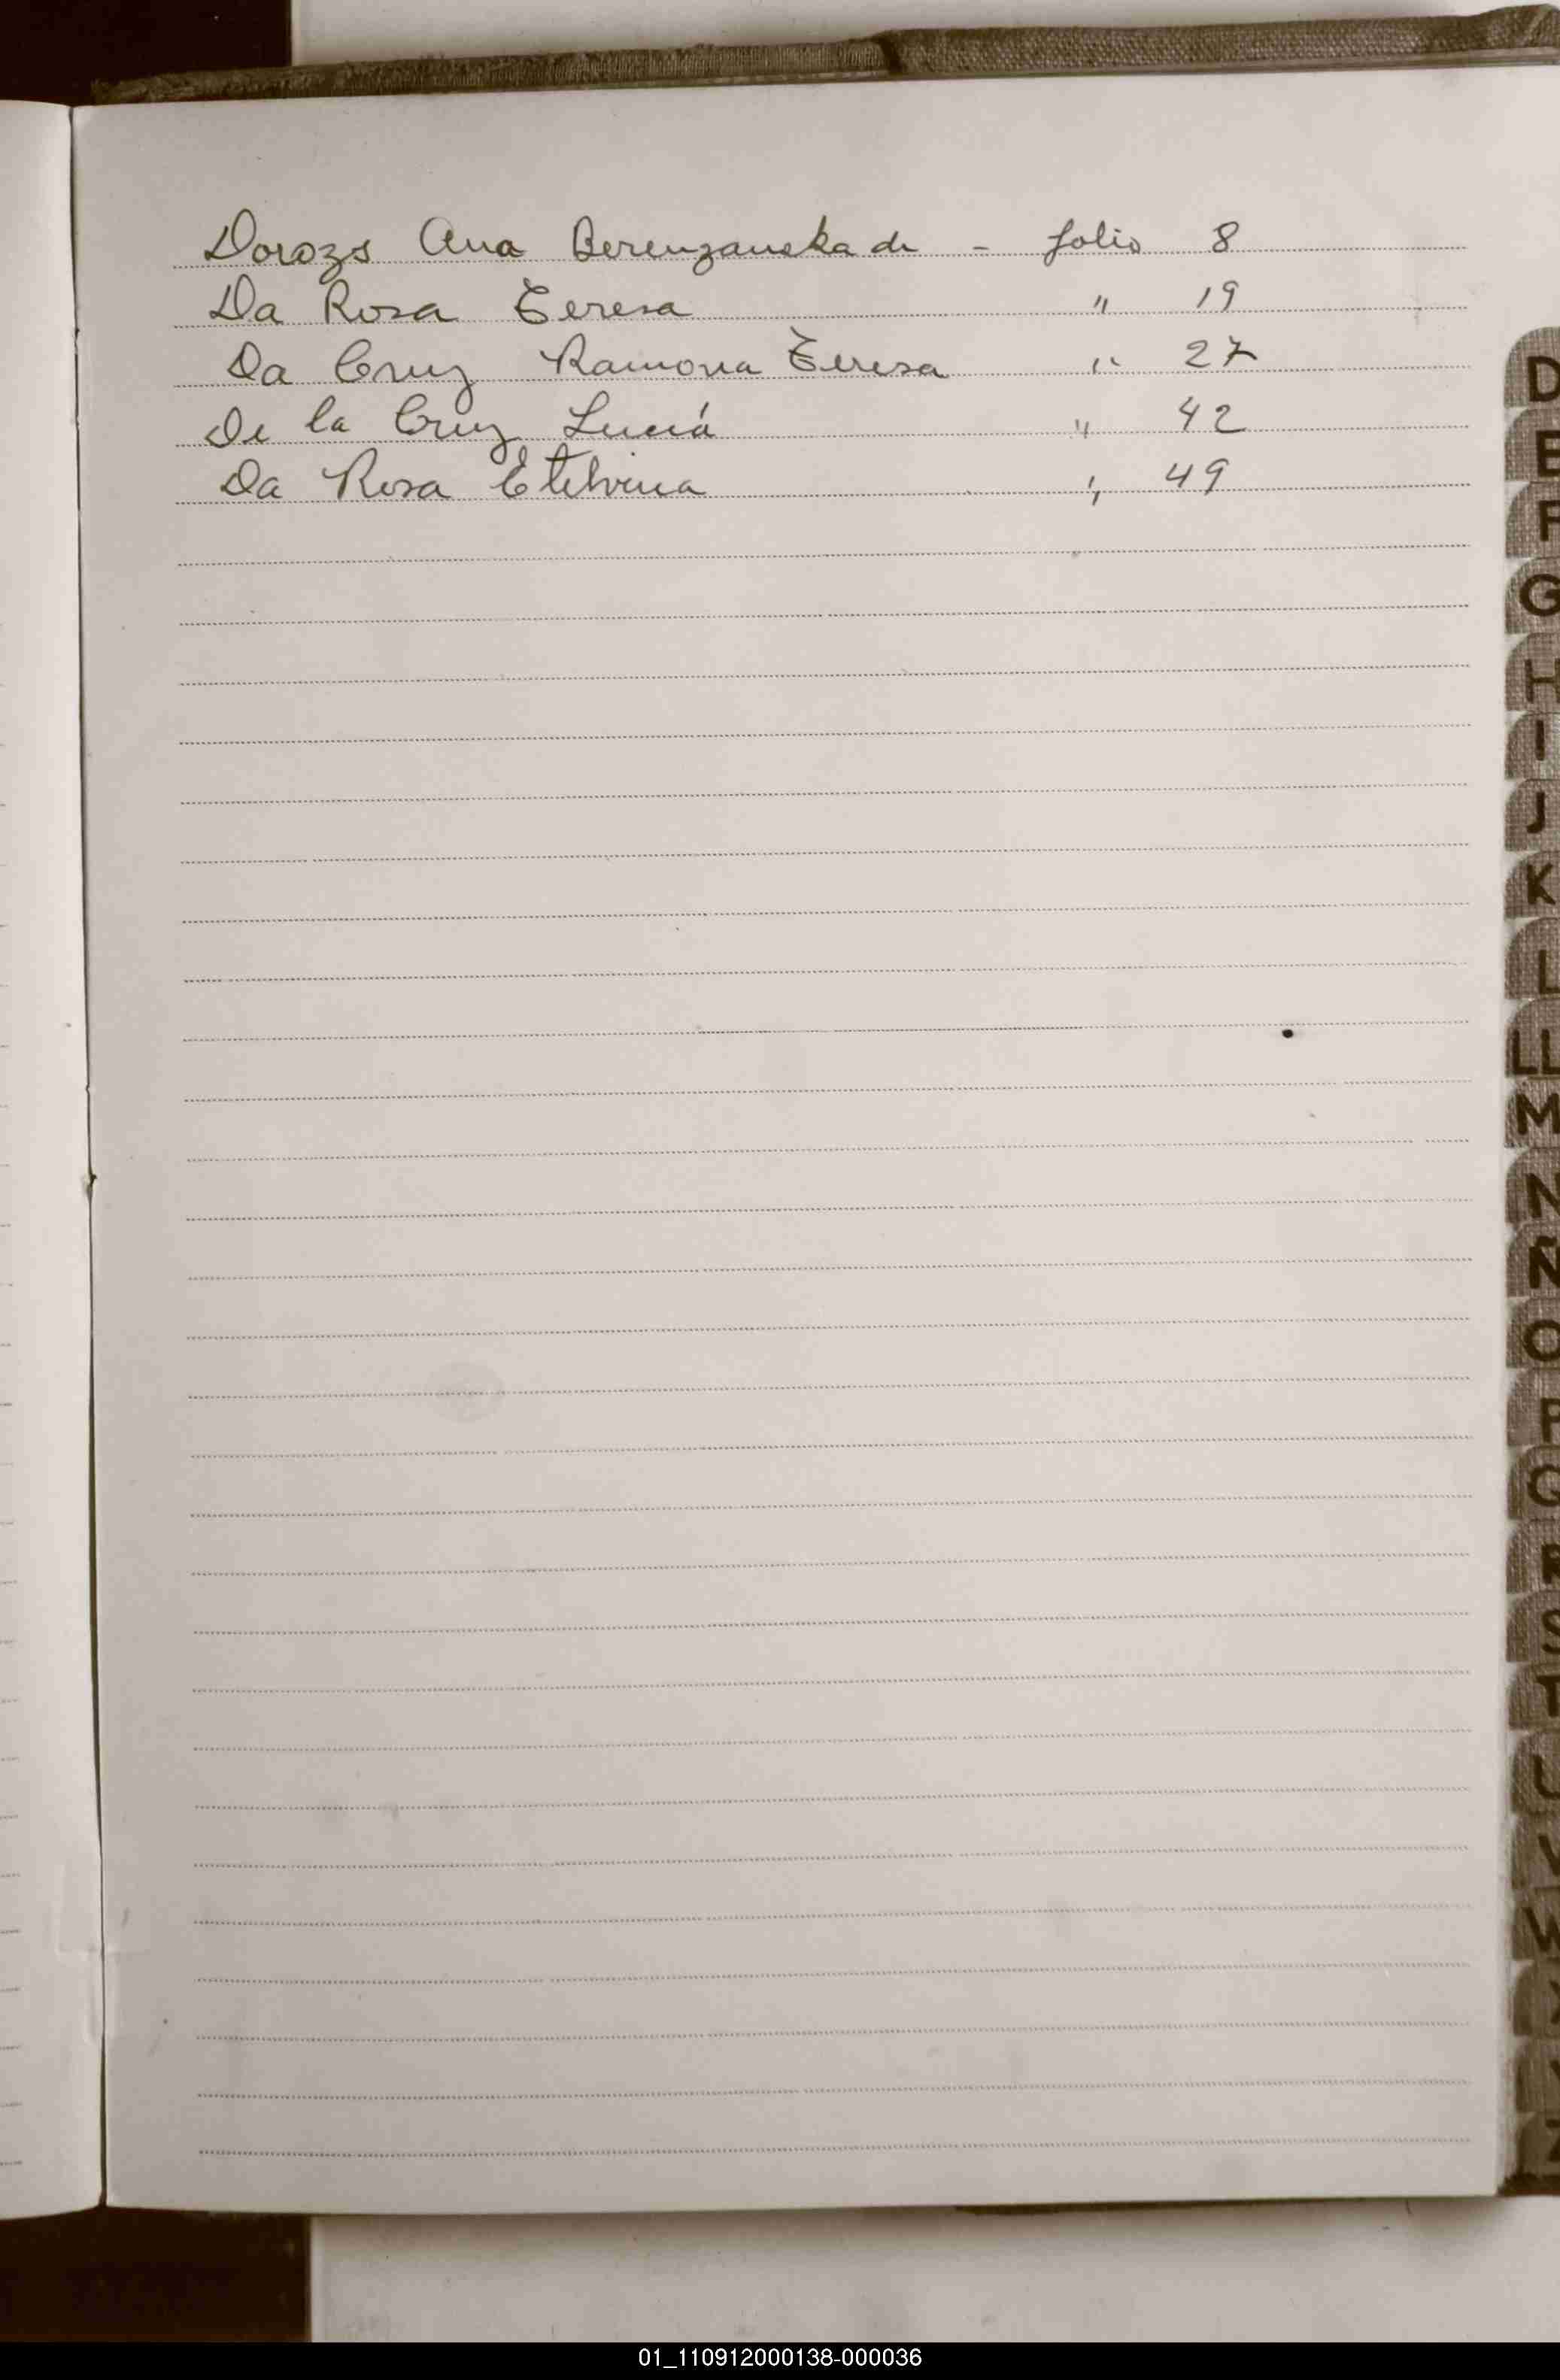 Dorozs Ana Berenzanska de - folio 8
Da Rosa Teresa " 19
Da Cruz Ramona Teresa " 27
De la Cruz Lucía " 42
Da Rosa Etelvina " 49
D
E
F
G
H
I
J
K
L
LL
M
N
Ñ
O
P
Q
R
S
T
U
V
W
X
Y
Z
01_110912000138-000036